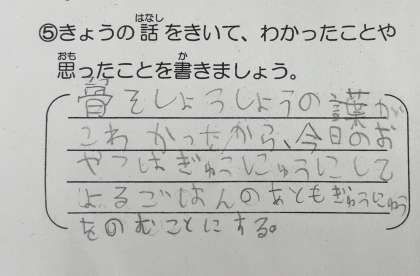 ⑤きょうの話をきいて、わかったことや
思ったことを書きましょう。
骨そしょうしょうの話が
こわかったから、今日のお
やつはぎゅうにゅうにして
よるごはんのあともぎゅうにゅう
をのむことにする。